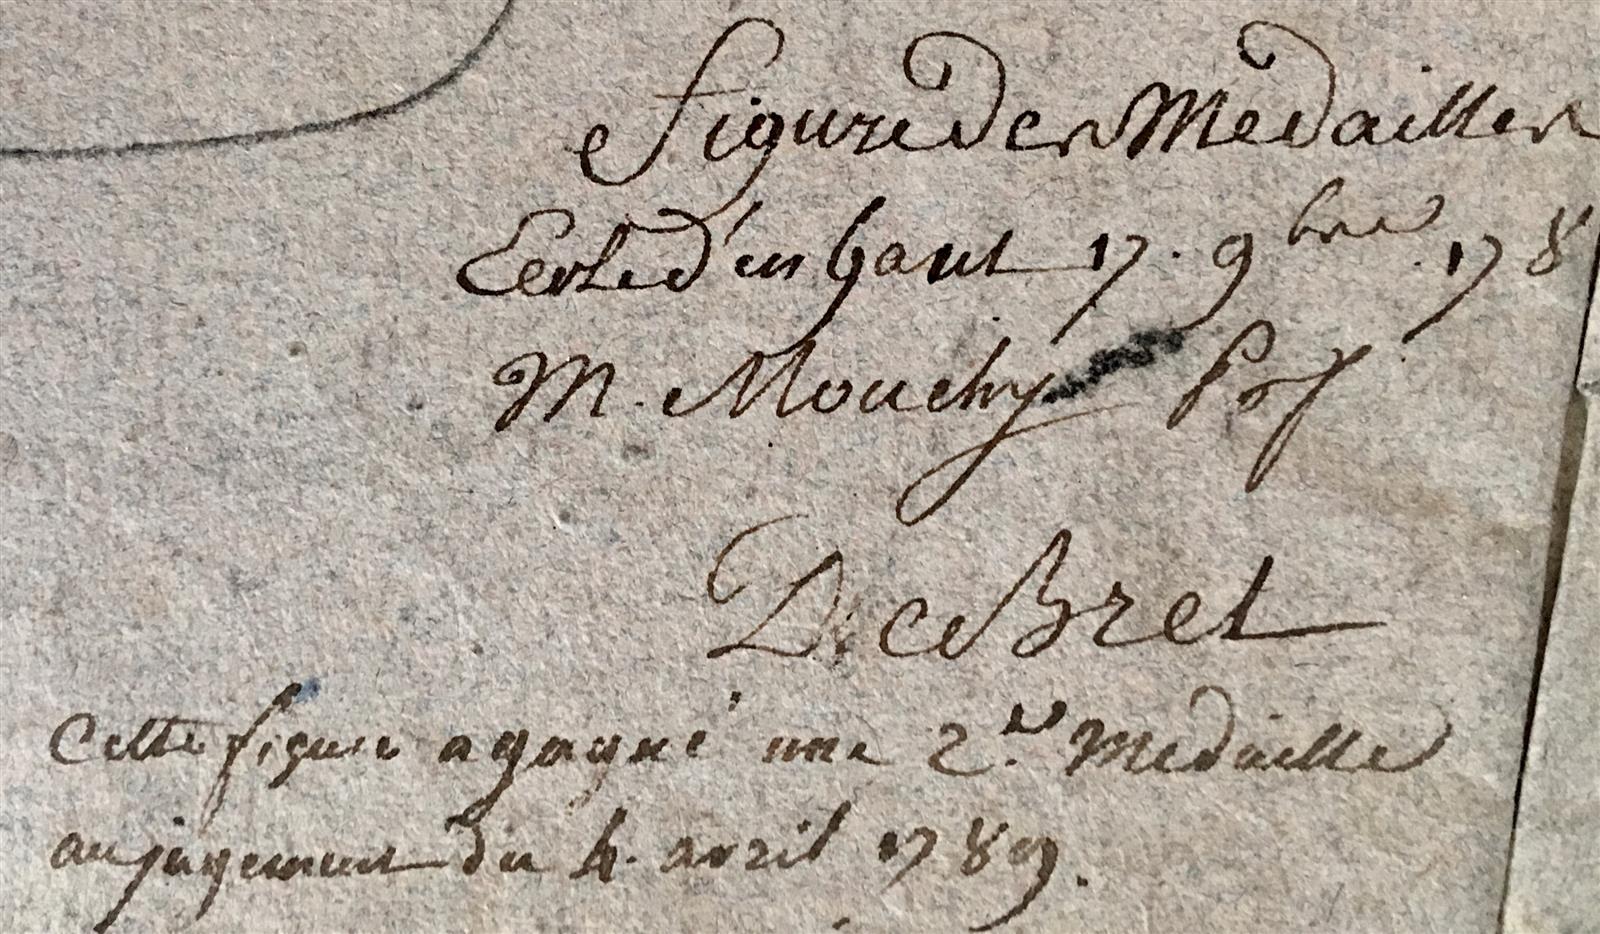 figure des Medailles
Ecole d'en haut 17. 9bre 178
M. Mouchy Prof
De Bret
Cette figure a gagné une 2.de Medaille
au jugement du 4. avril 1789.